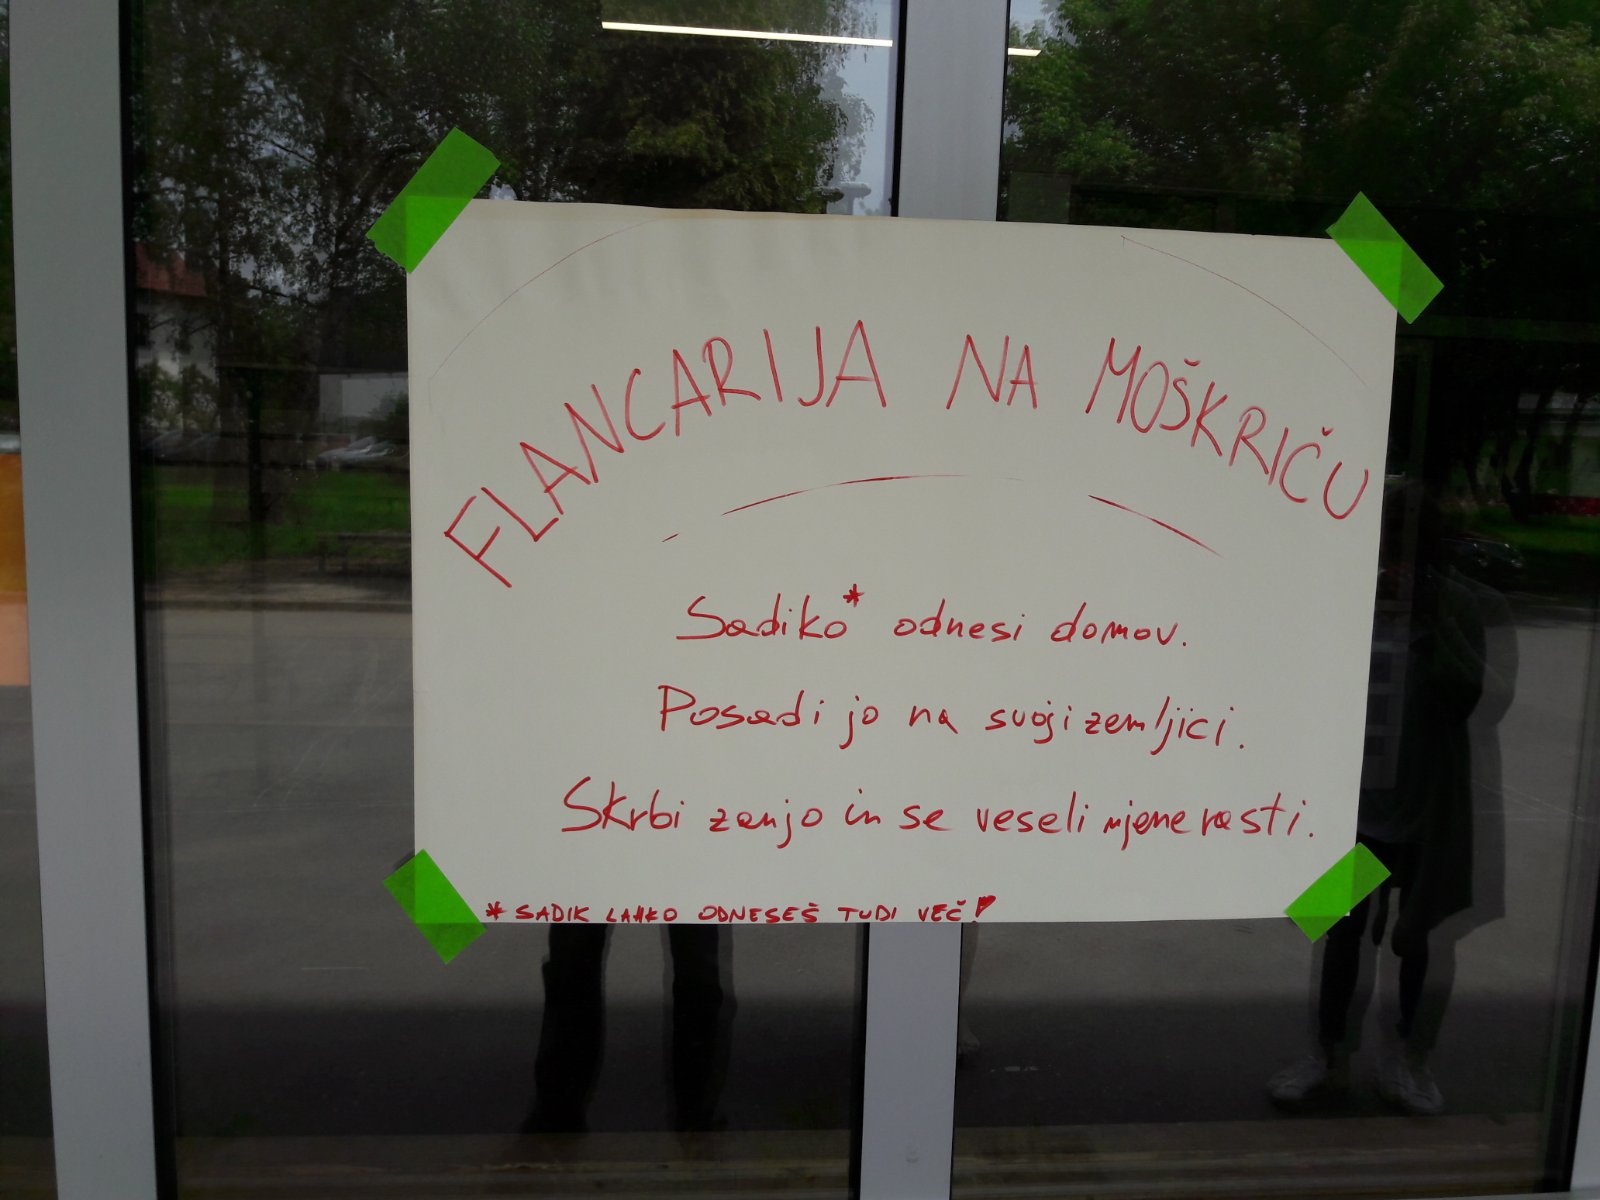 FLANCARIJA NA MOŠKRIČU
Sadiko* odnesi domov.
Posadi jo na svoji zemljici.
Skrbi zanjo in se veseli njene rasti.
* SADIK LAHKO ODNESEŠ TUDI VEČ!